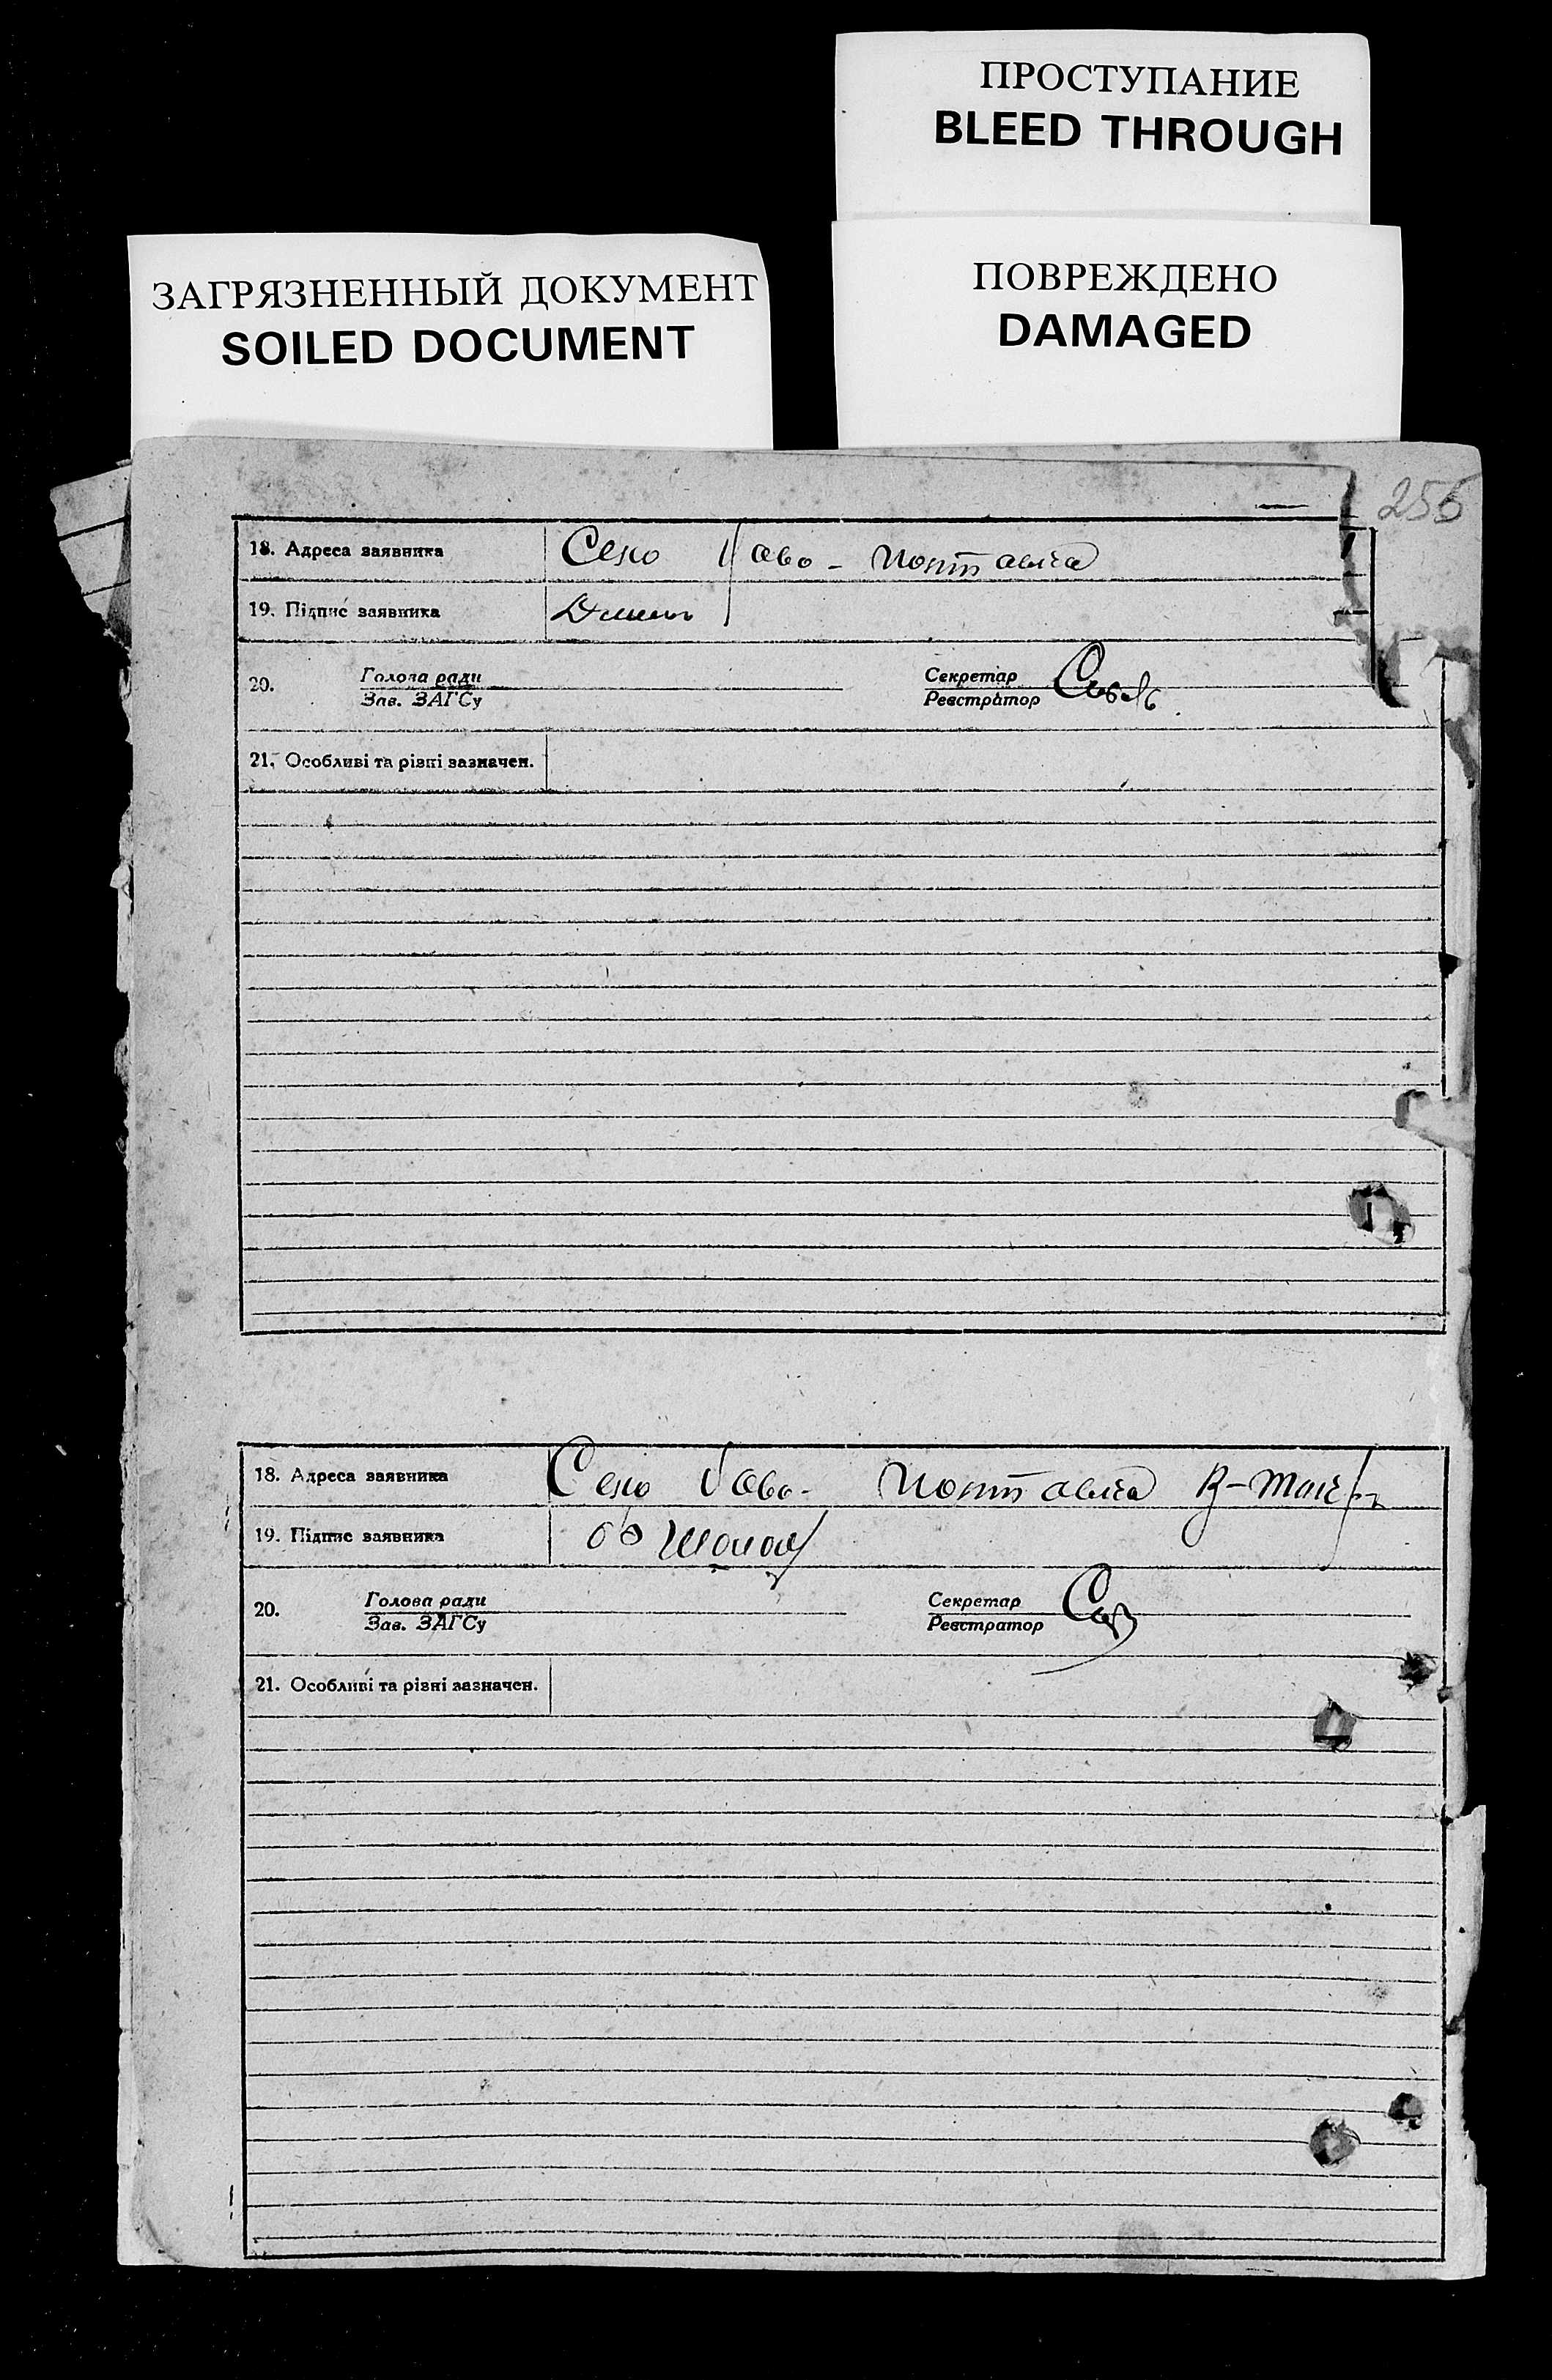 ПРОСТУПАНИЕ
BLEED THROUGH
ЗАГРЯЗНЕННЫЙ ДОКУМЕНТ
SOILED DOCUMENT
ПОВРЕЖДЕНО
DAMAGED
255
18. Адреса заявника Село Ново-Полтавка
19. Підпис заявника
20. Голова ради Секретар
Зав. ЗАГСу Реєстратор
21. Особливі та різні зазначен.
18. Адреса заявника Село Ново-Полтавка
19. Підпис заявника
20. Голова ради Секретар
Зав. ЗАГСу Реєстратор
21. Особливі та різні зазначен.